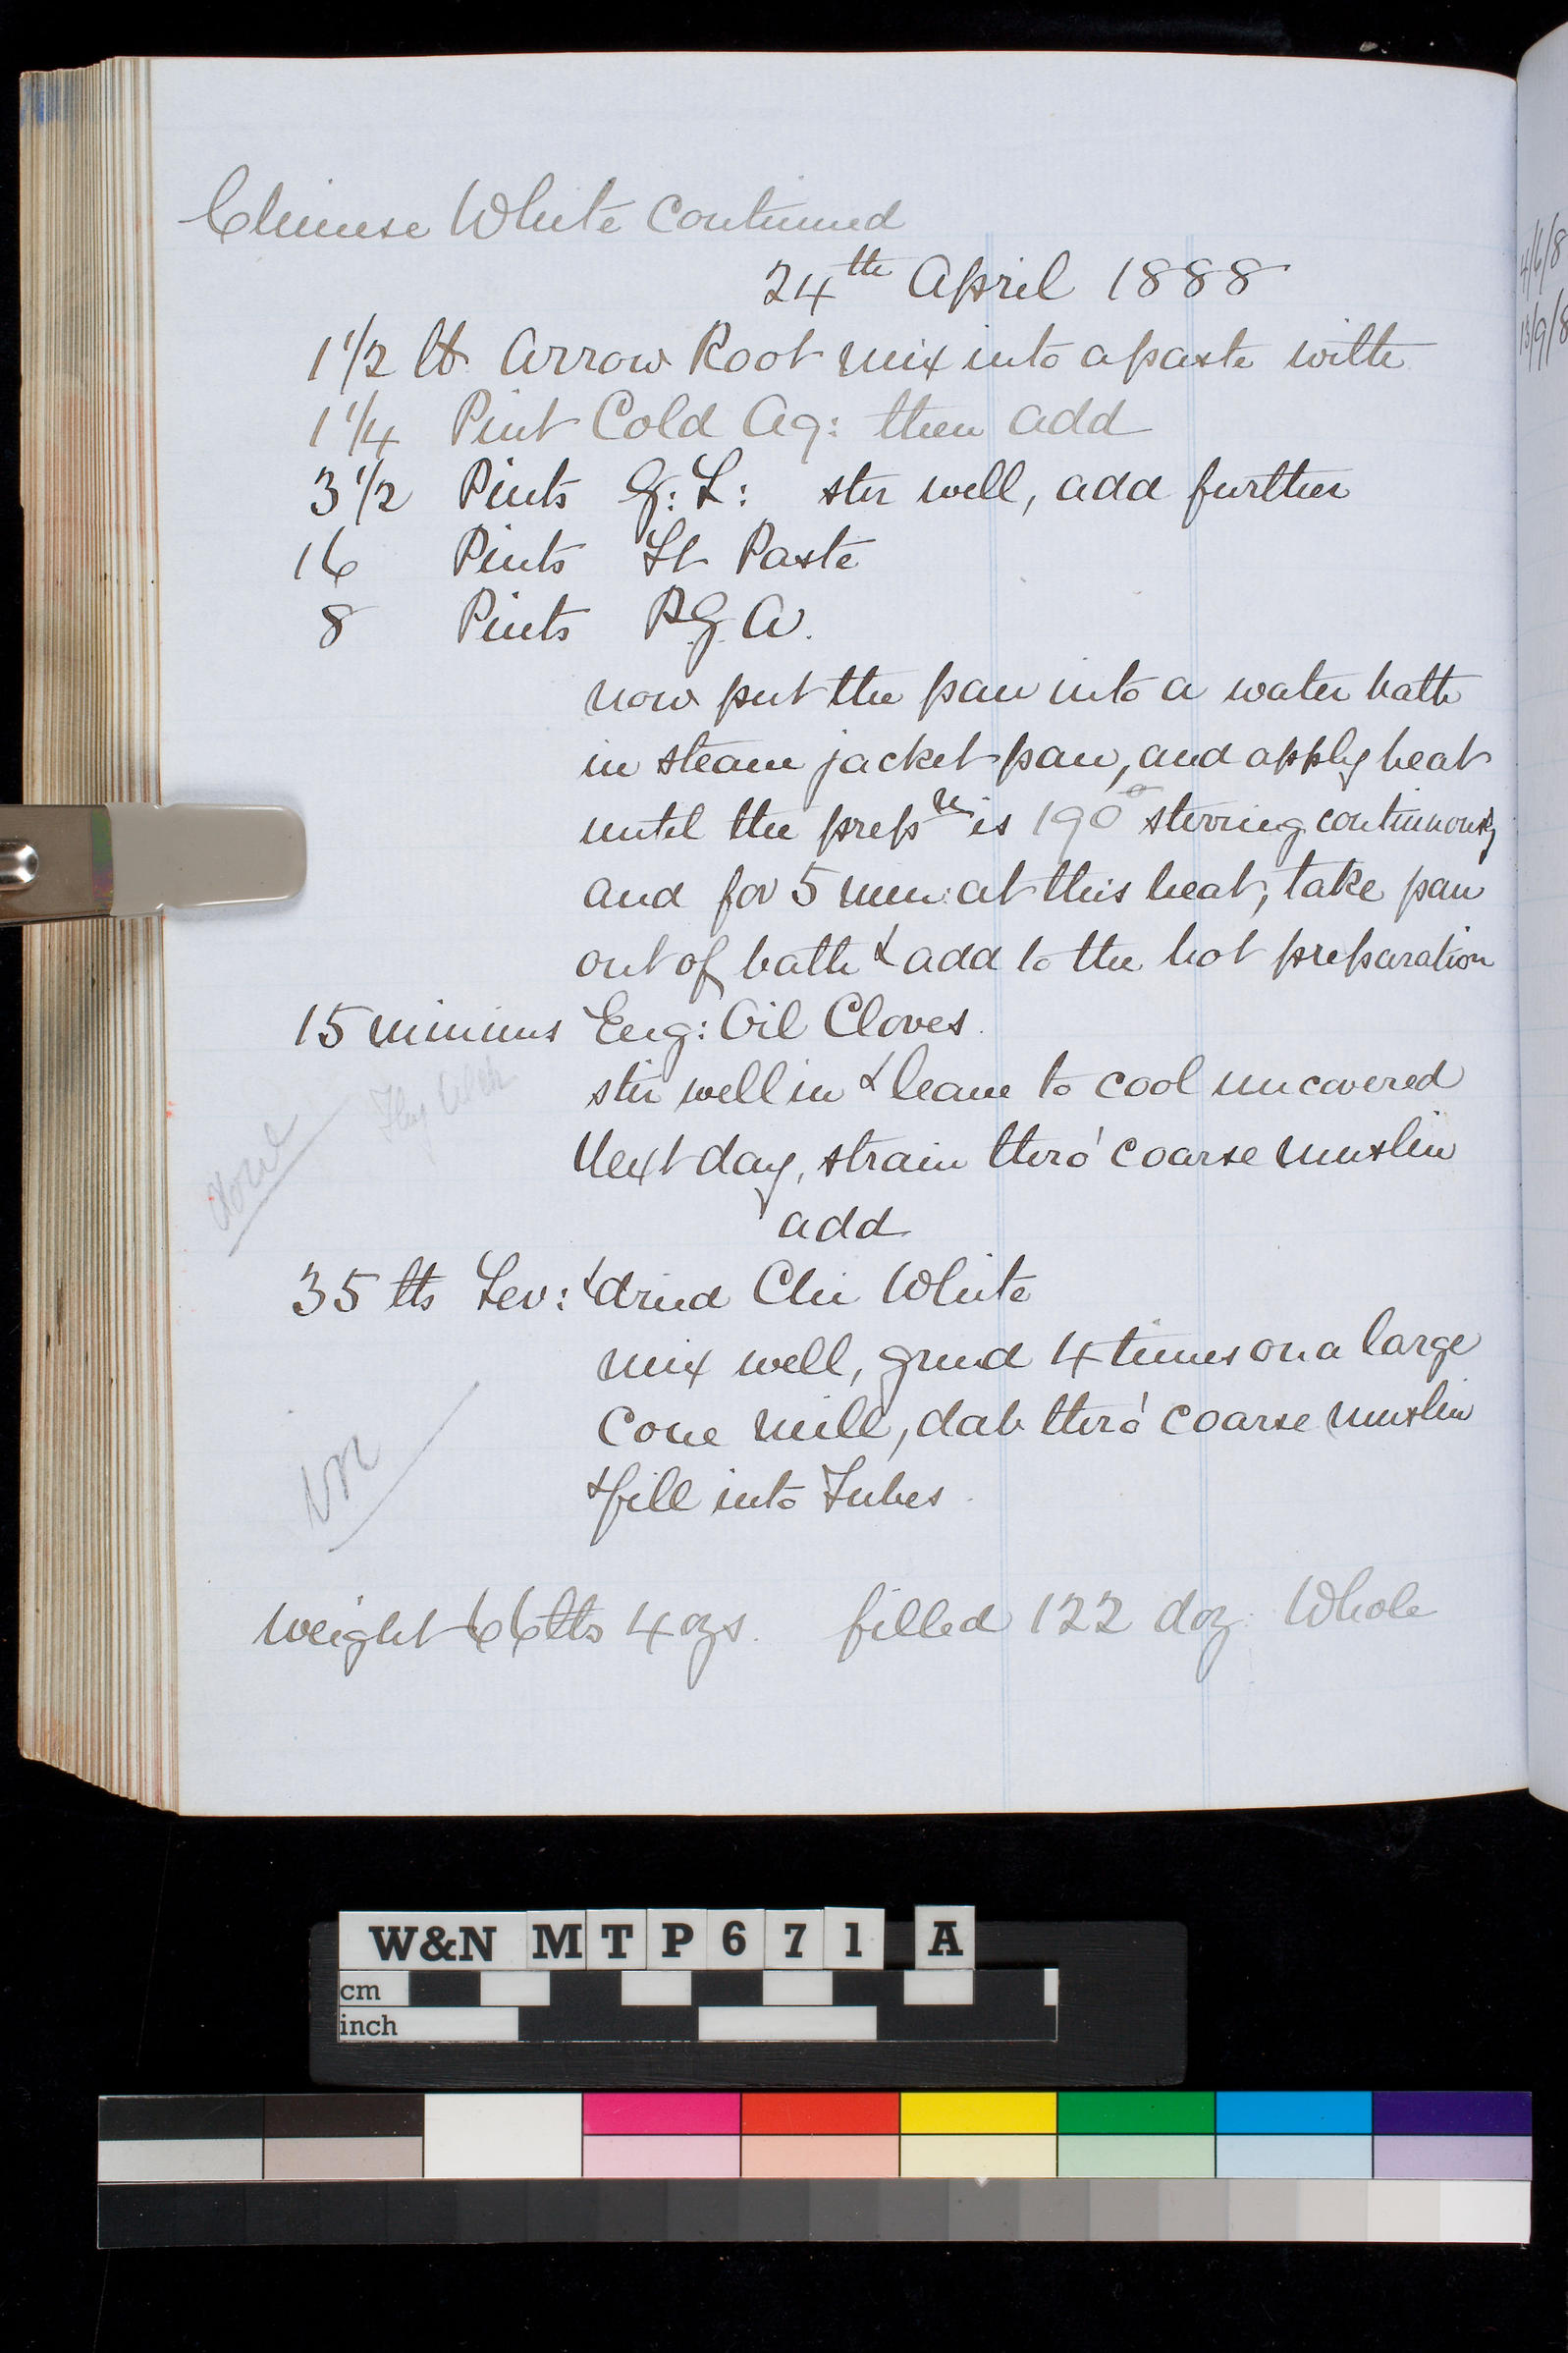 Chinese White continued
24th April 1888
1 1/2 lb Arrow Root mix into a paste with
1 1/4 Pint Cold Aq: then add
3 1/2 Pints G: L: stir well, add further
16 Pints St Paste
8 Pints P.G.A.
now put the pan into a water bath
in steam jacket pan, and apply heat
until the prepn is 190° stirring continuously
and for 5 min: at this heat, take pan
out of bath & add to the hot preparation
15 minims Eng: Oil Cloves.
stir well in & leave to cool uncovered
Next day, strain thro' coarse muslin
add
done
35 lbs Lev: & dried Chi White
mix well, grind 4 times on a large
Cone mill, dab thro' coarse muslin
& fill into Tubes.
weight 66 lbs 4 ozs. filled 122 doz: Whole
4/6/8
13/9/8
W&N MTP671 A
cm
inch